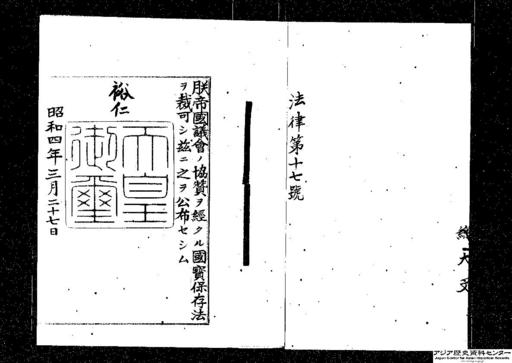 總大文
法律第十七號
朕帝國議會ノ協贊ヲ經タル國寶保存法
ヲ裁可シ茲ニ之ヲ公布セシム
裕仁
天皇
御璽
昭和四年三月二十七日
アジア歴史資料センター
Japan Center for Asian Historical Records